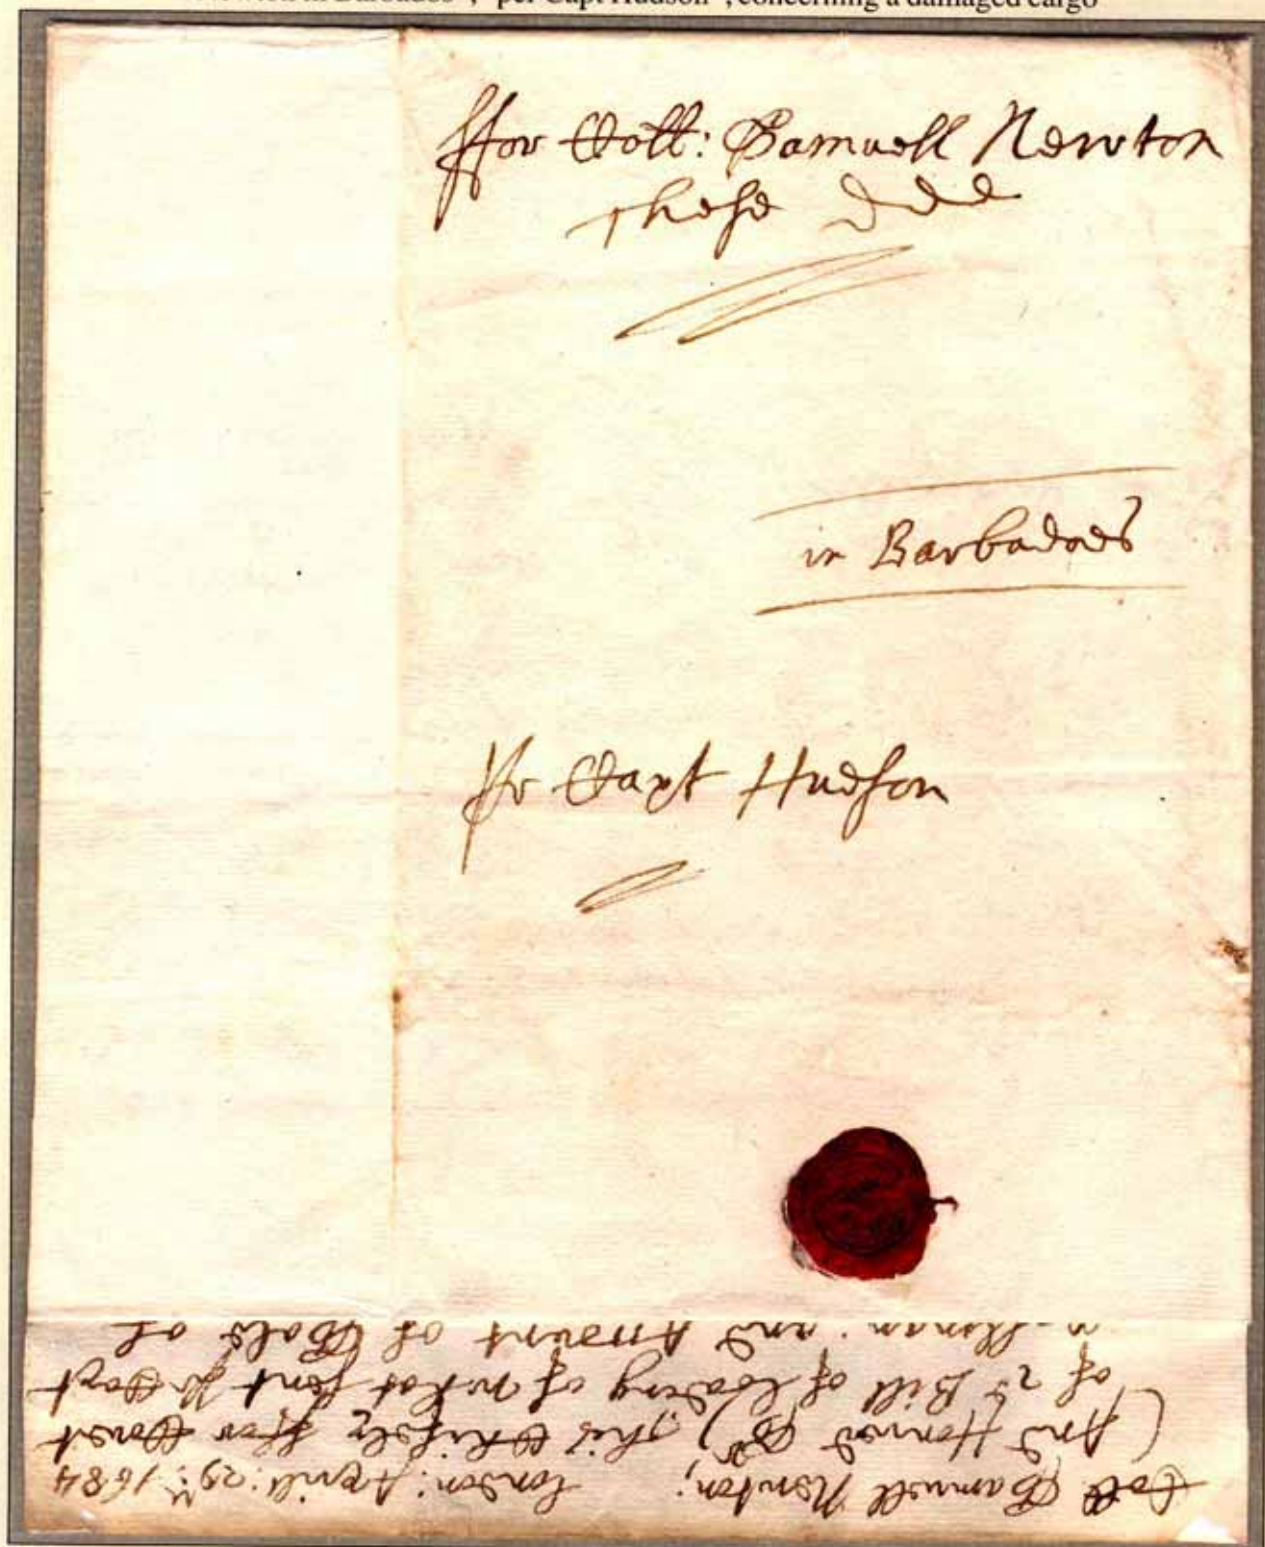 Newton in Barbados", "per Capt Hudson", concerning a damaged cargo
ffor Coll: Samuell Newton
These ddd
in Barbadoes
Pr Capt Hudson
Coll Samuell Newton; London: Aprill: 29th: 1684
(And Honrd Sr) This Chifely ffor Covert
of 2d Bill of loading of what sent Pr Capt
and Amount of Sale of